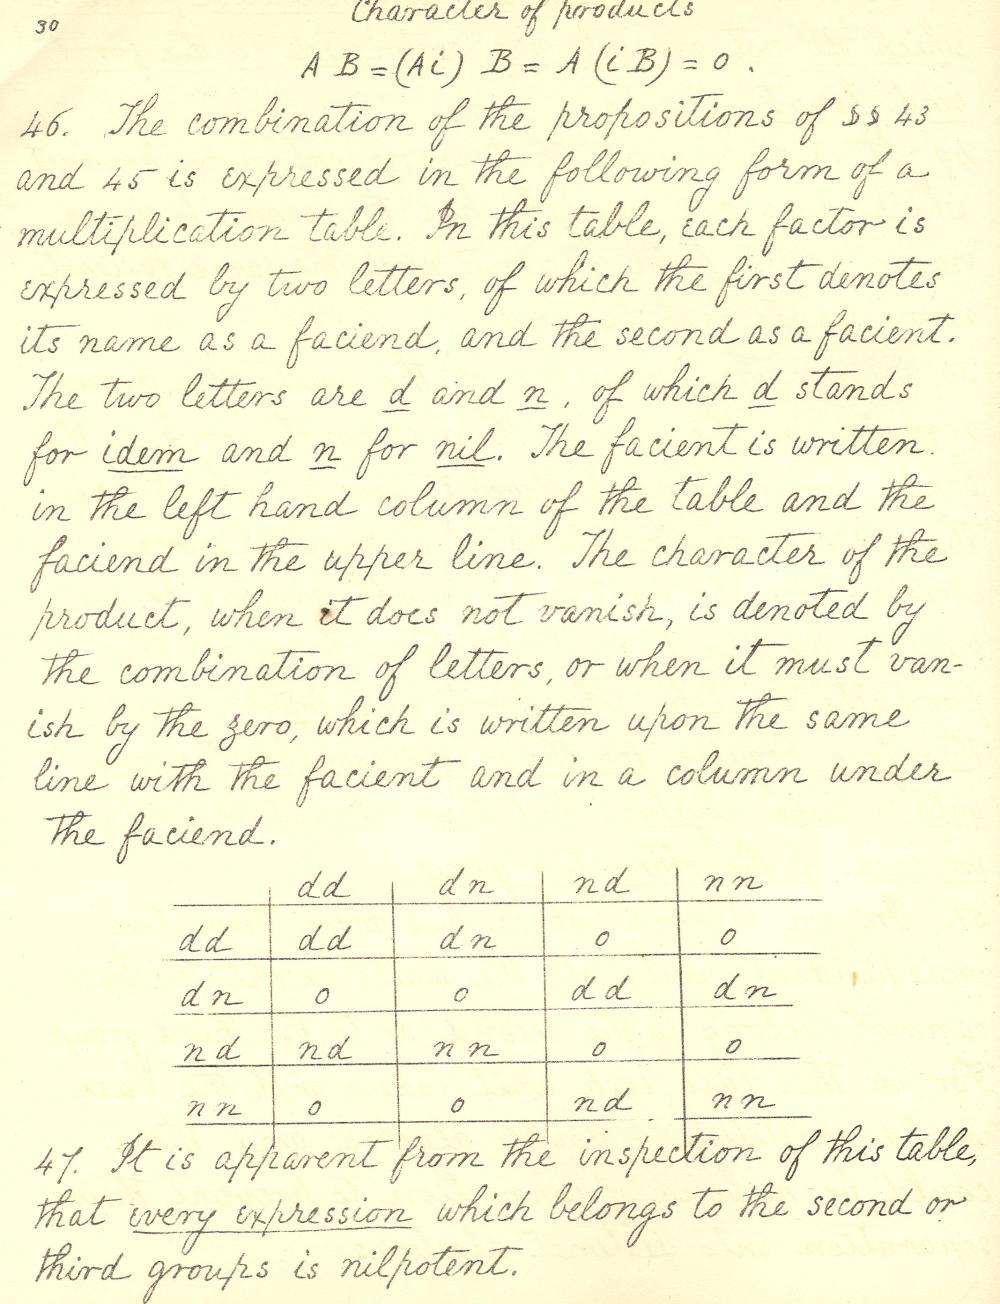 30
Character of products
A B = (A i) B = A (i B) = 0 .
46. The combination of the propositions of §§ 43
and 45 is expressed in the following form of a
multiplication table. In this table, each factor is
expressed by two letters, of which the first denotes
its name as a faciend, and the second as a facient.
The two letters are d and n, of which d stands
for idem and n for nil. The facient is written
in the left hand column of the table and the
faciend in the upper line. The character of the
product, when it does not vanish, is denoted by
the combination of letters, or when it must van-
ish by the zero, which is written upon the same
line with the facient and in a column under
the faciend.
dd dn nd nn
dd dd dn 0 0
dn 0 0 dd dn
nd nd nn 0 0
nn 0 0 nd nn
47. It is apparent from the inspection of this table,
that every expression which belongs to the second or
third groups is nilpotent.